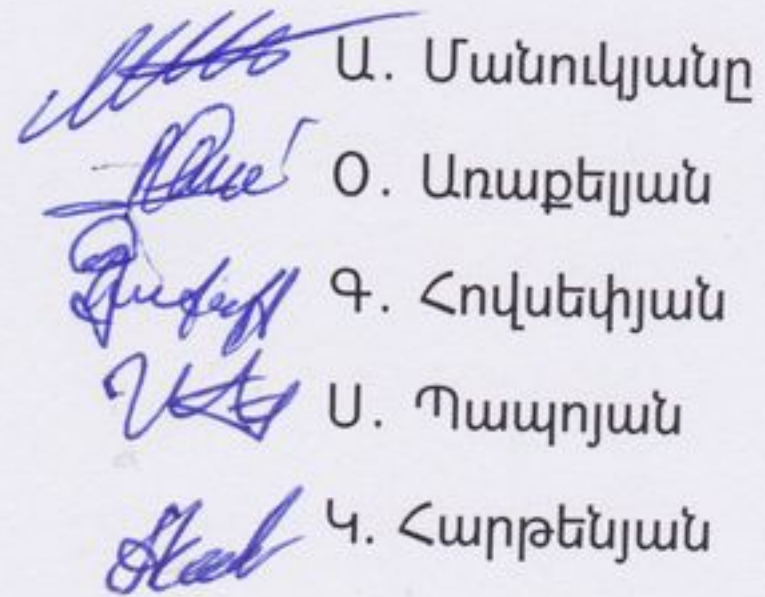 Ա. Մանուկյանը
Օ. Առաքելյան
Գ. Հովսեփյան
Ս. Պապոյան
Կ. Հարթենյան